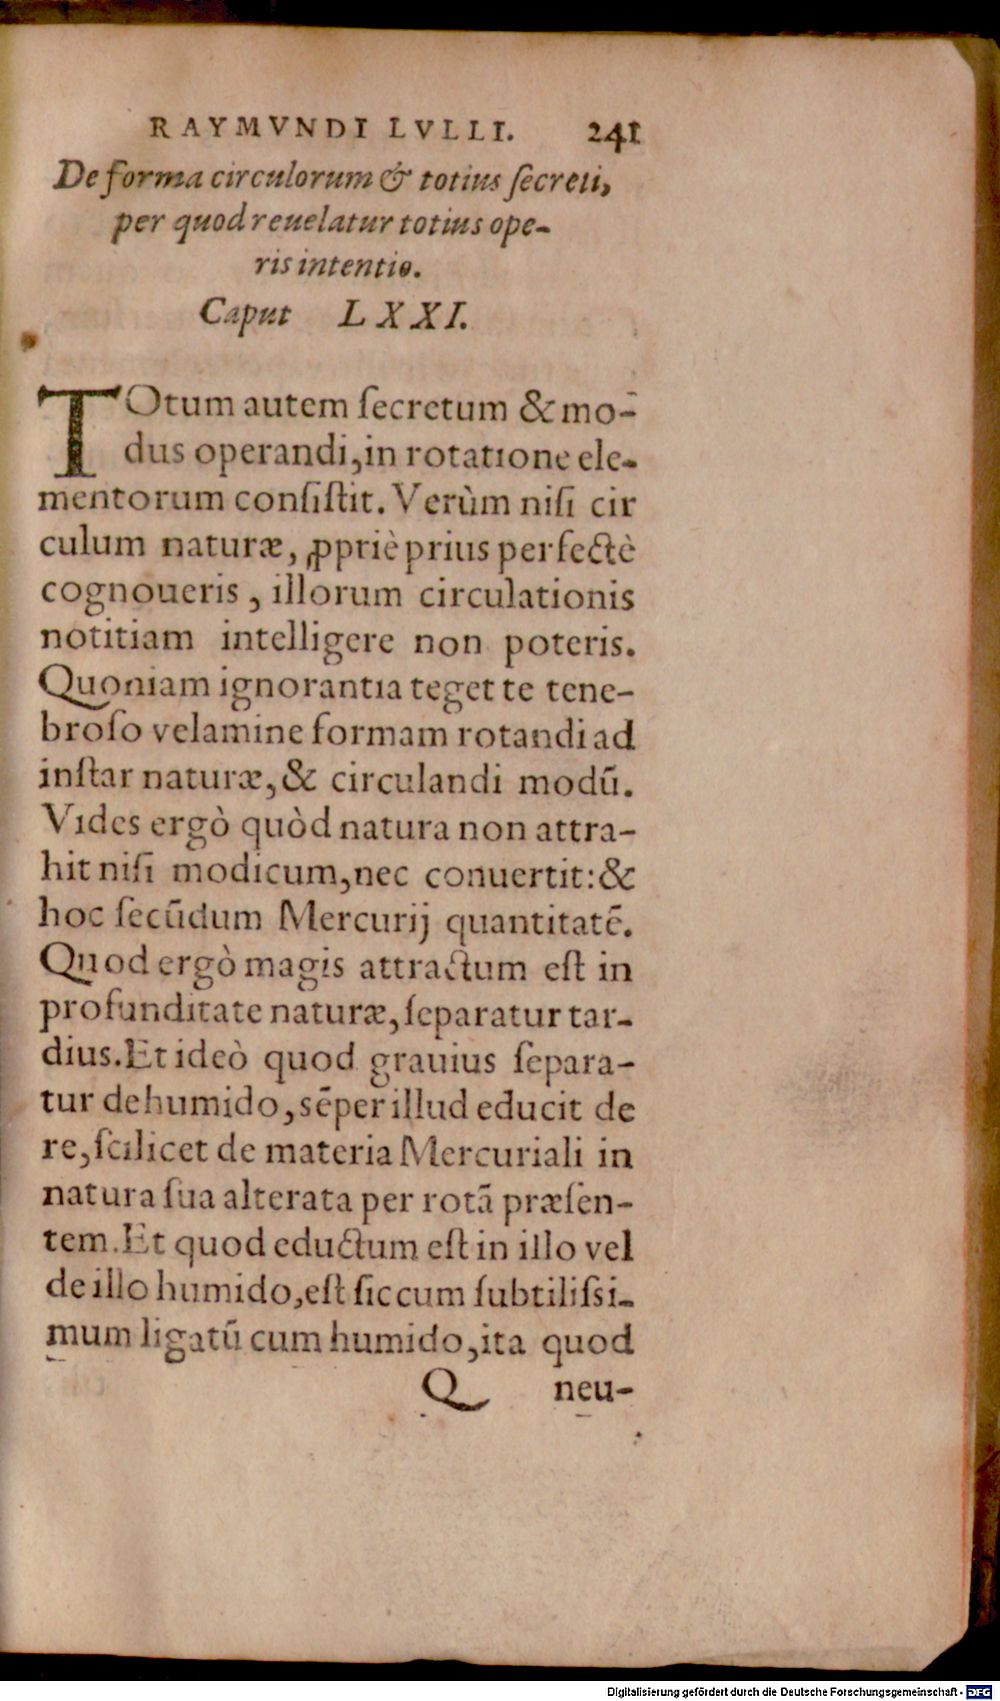 RAYMVNDI LVLLI. 241
De forma circulorum & totius ſecreti,
per quod reuelatur totius ope-
ris intentio.
Caput LXXI.
TOtum autem ſecretum & mo-
dus operandi,in rotatione ele-
mentorum conſiſtit. Verùm niſi cir
culum naturæ, ꝓpriè prius perfectè
cognoueris , illorum circulationis
notitiam intelligere non poteris.
Quoniam ignorantia teget te tene-
broſo velamine formam rotandi ad
inſtar naturæ,& circulandi modū.
Vides ergò quòd natura non attra-
hit niſi modicum,nec conuertit:&
hoc ſecūdum Mercurij quantitatē.
Quod ergò magis attractum eſt in
profunditate naturæ,ſeparatur tar-
dius.Et ideò quod grauius ſepara-
tur de humido,sēper illud educit de
re,ſcilicet de materia Mercuriali in
natura ſua alterata per rotā præſen-
tem.Et quod eductum eſt in illo vel
de illo humido,eſt ſiccum ſubtiliſsi-
mum ligatū cum humido,ita quod
Q neu-
Digitalisierung gefördert durch die Deutsche Forschungsgemeinschaft - DFG